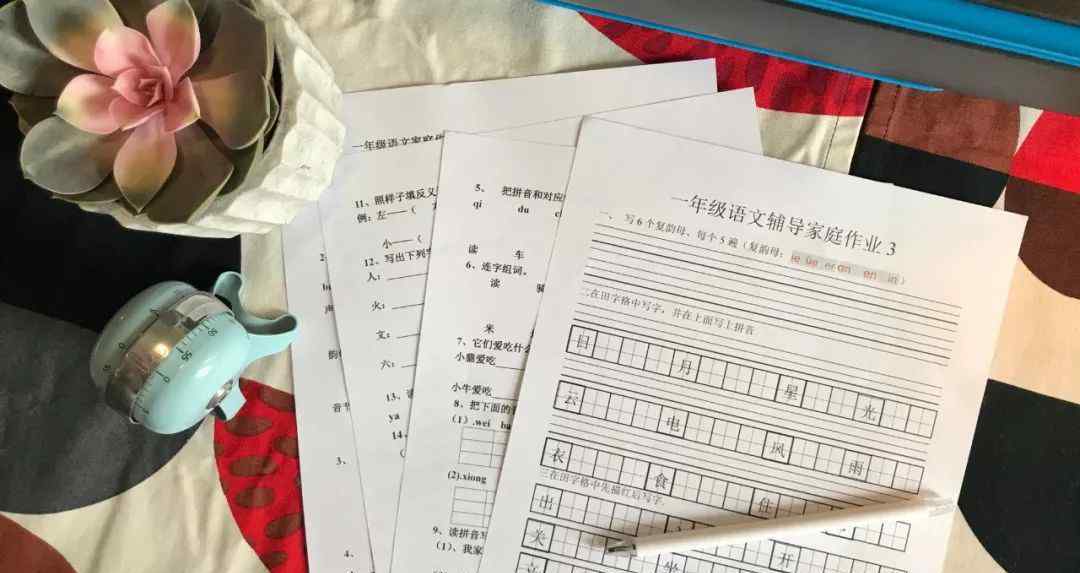 一年级语文辅导家庭作业3
一、写6个复韵母、每个5遍（复韵母：
二在田字格中写字，并在上面写上拼音
日 月 星 光
云 电 风 雨
衣 食 住
三在田字格中先描红后写字
出
关 开
立 坐
5、 把拼音和对应
qi du
读 车
6、连字组词。
读
米
7、它们爱吃什么
小猫爱吃
小牛爱吃
8、把下面的
（1）.wei ba
(2).xiong
9、读拼音写
（1）、我家
一年级语文家庭作
11、照样子填反义
例：左——（
小——（
12、写出下列字
人：
火：
文：
六：
13、读
ya
14、
音节
3、
4、
60
55
0